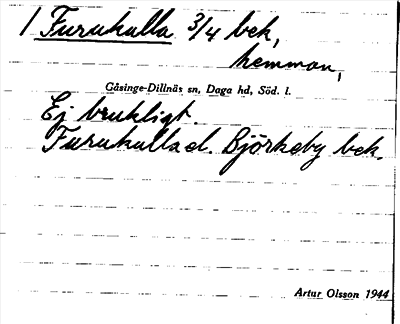 1 Furukulla 3/4 bek,
hemman,
Gåsinge-Dillnäs sn, Daga hd, Söd. l.
Ej brukligt.
Furukulla el. Björkeby bek.
Artur Olsson 1944